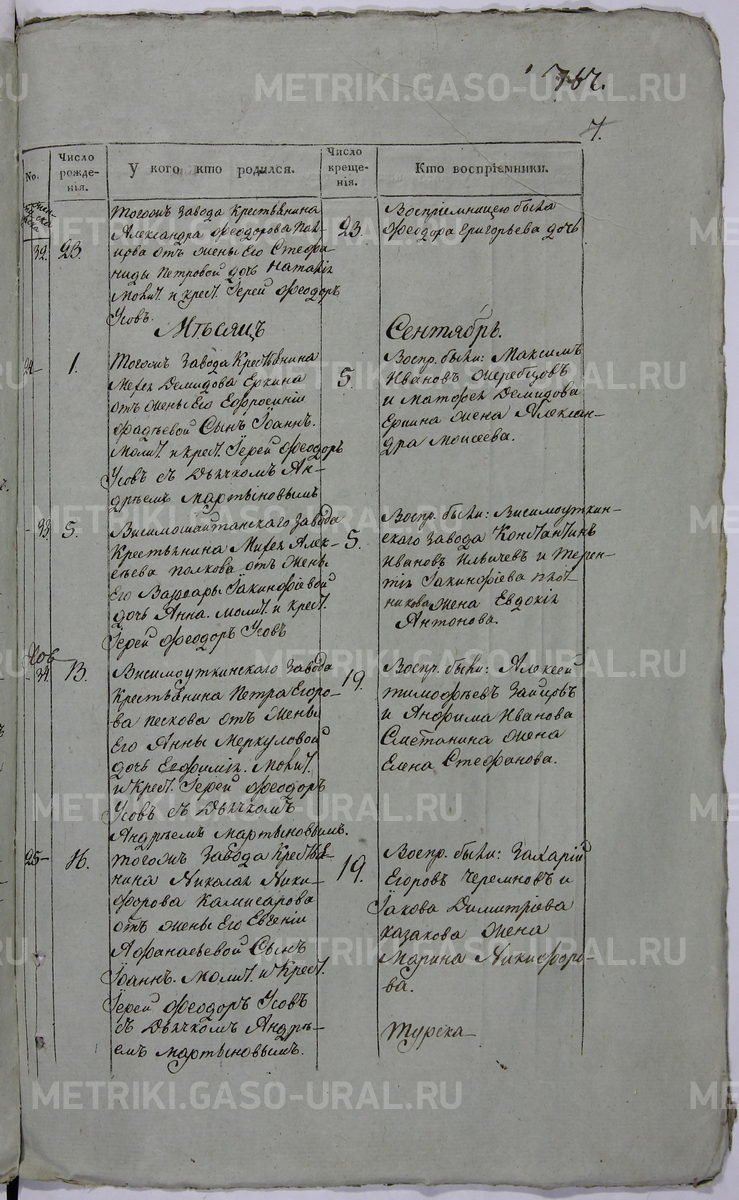 METRIKI.GASO-URAL.RU
787.
7.
No. Число рожденія. У кого кто родился. Число крещенія. Кто воспріемники.
32. 23.
Тогожъ завода крестьянина
Александра Феодорова
отъ жены Его Стефа-
ниды Петровой дочь Наталія
Молит. и крест. Іерей Феодоръ
Усовъ.
23.
Воспріемницею была
Феодора Григорьева дочь
Мѣсяцъ Сентябрь.
1.
Тогожъ завода Крестьянина
Демидова Еркина
отъ жены Его Ефросиніи
Фадѣевой Сынъ Іоаннъ.
Молит. и крест. Іерей Феодоръ
Усовъ съ Дьячкомъ Ан-
дрѣемъ Мартыновымъ
5.
Воспр. были: Максимъ
Ивановъ Жеребцовъ
и Матфея Демидова
Еркина жена Алексан-
дра Моисеева.
33. 5.
Висимошайтанскаго завода
Крестьянина Алек-
сѣева Полкова отъ жены
Его Варвары Іакинфіевой
дочь Анна. молит. и крест.
Іерей Феодоръ Усовъ
5.
Воспр. были: Висимоуткин-
скаго завода Константинъ
Ивановъ Ильичевъ и Терен-
тія Іакинфіева Плот-
никова жена Евдокія
Антонова.
34. 13.
Висимоуткинскаго завода
Крестьянина Петра Егоро-
ва Пескова отъ жены
Его Анны Меркуловой
дочь Евфимія. Молит.
и крест. Іерей Феодоръ
Усовъ съ Дьячкомъ
Андрѣемъ Мартыновымъ.
19.
Воспр. были: Алексей
Тимофѣевъ Зайцовъ
и Анфима Иванова
Сметанина жена
Елена Стефанова.
25- 16.
Тогожъ завода Крестья-
нина Николая Ники-
форова Камисарова
отъ жены Его Евгеніи
Афанасьевой Сынъ
Іоаннъ. Молит. и Крест.
Іерей Феодоръ Усовъ
съ Дьячкомъ Андрѣ-
емъ Мартыновымъ.
19.
Воспр. были: Захарій
Егоровъ Черемновъ и
Іакова Димитріева
Казакова жена
Марина Никифоро-
ва.